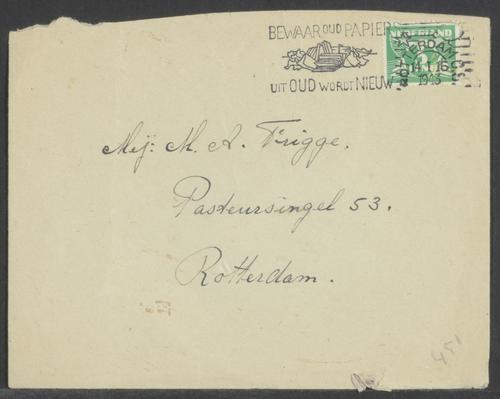 BEWAAR OUD PAPIER
UIT OUD WORDT NIEUW
NEDERLAND
ROTTERDAM
14.1 16
1943
Mej: M. A. Frigge.
Pasteursingel 53.
Rotterdam.
451